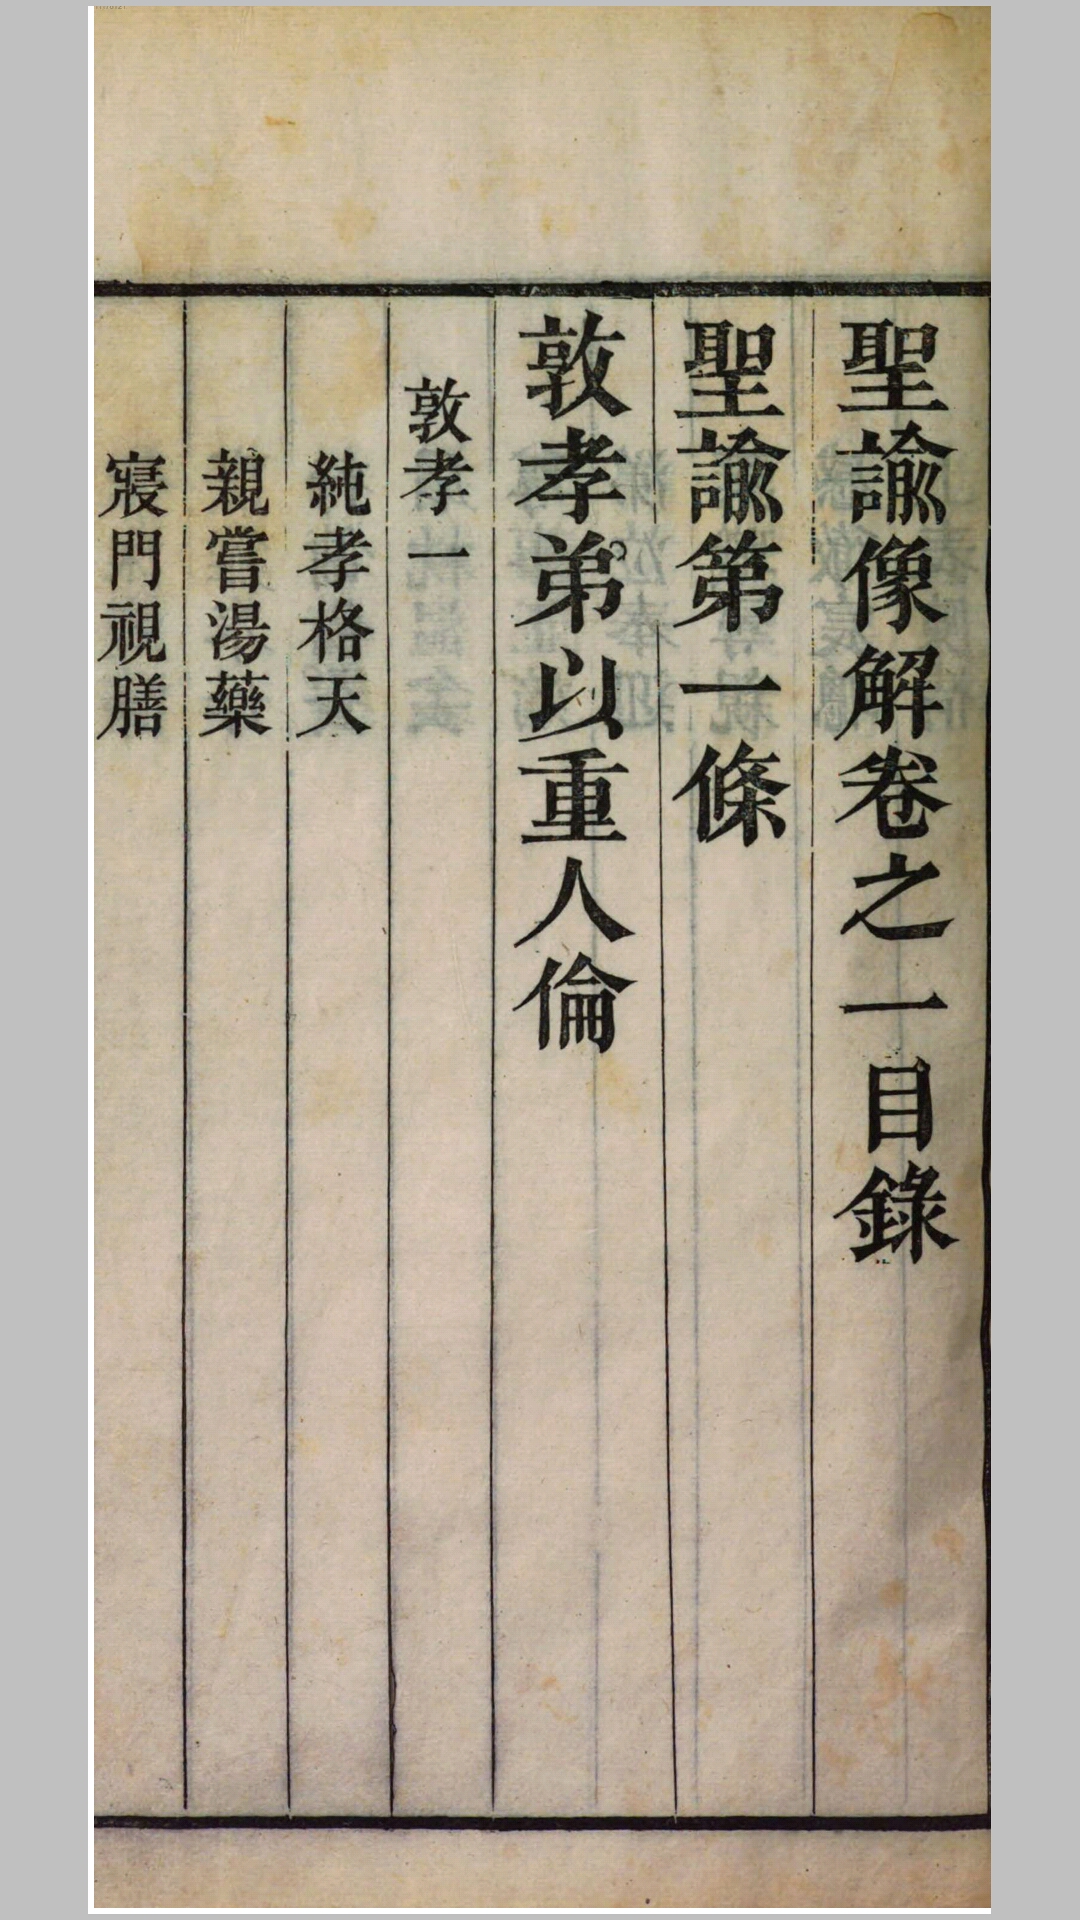 聖諭像解卷之一目錄
聖諭第一條
敦孝弟以重人倫
敦孝一
純孝格天
親嘗湯藥
寢門視膳